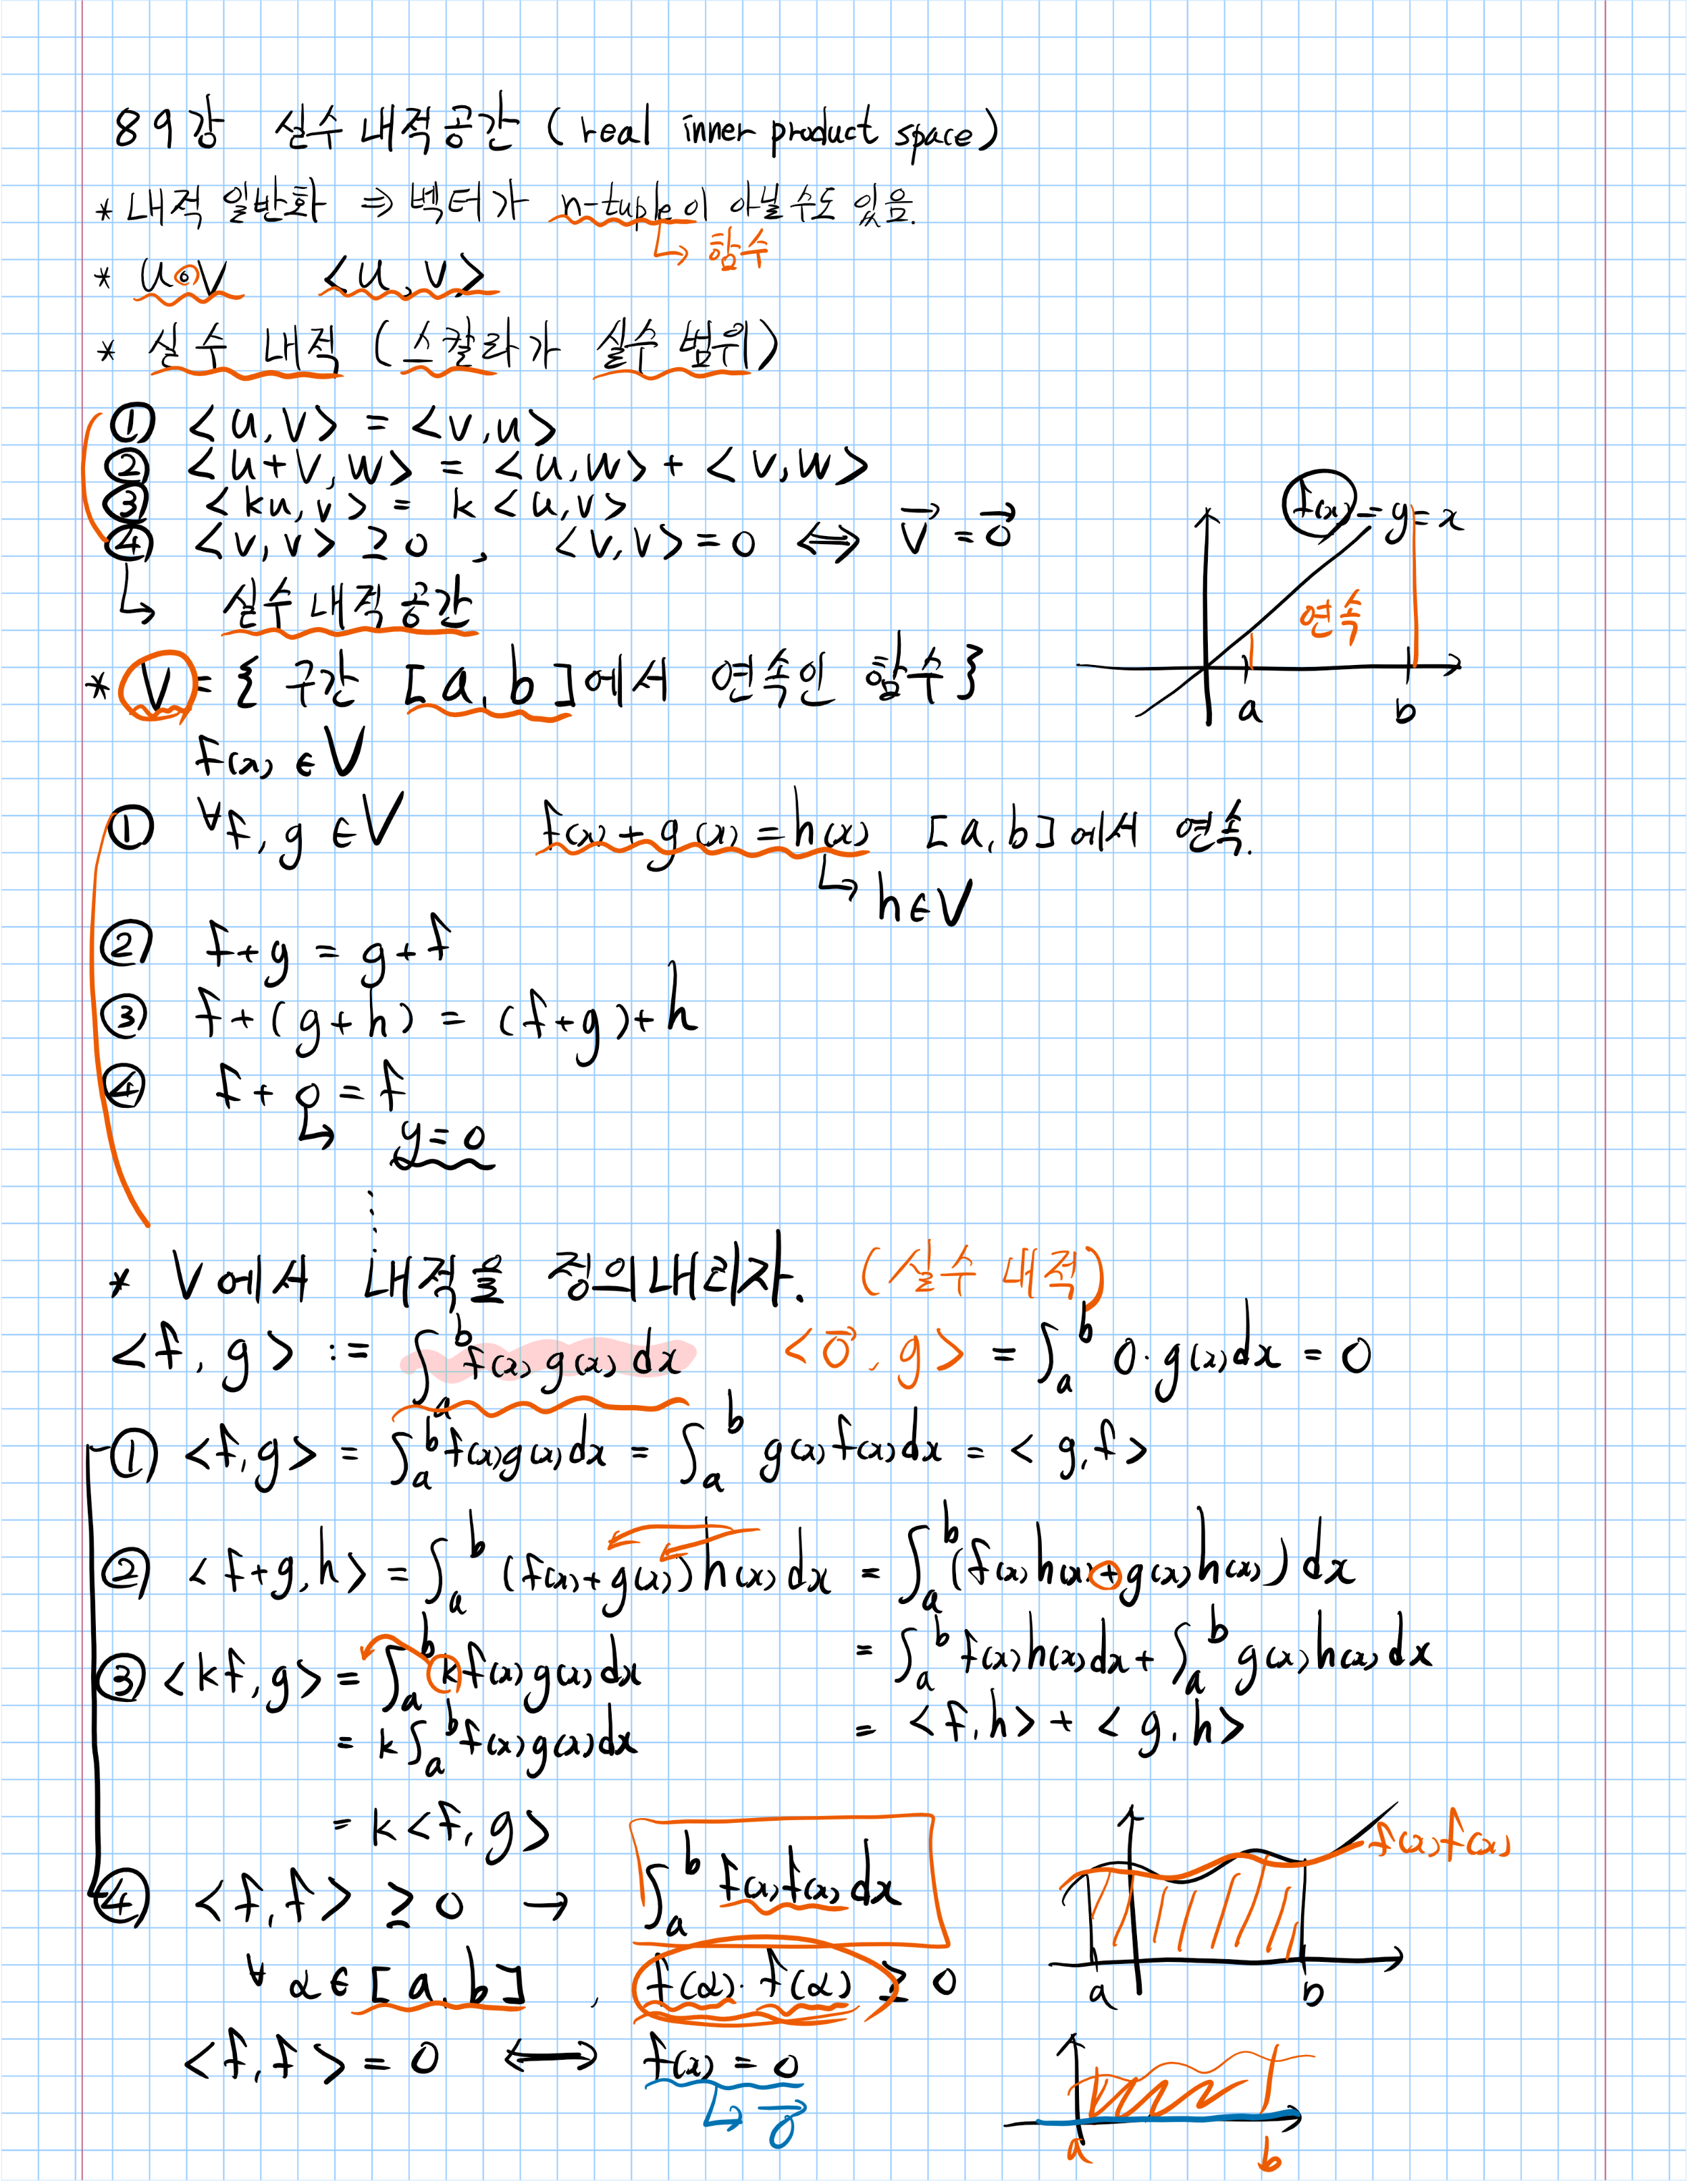 89강 실수 내적공간 (real inner product space)
* 내적 일반화 ⇒ 벡터가 n-tuple이 아닐 수도 있음.
↳ 함수
* u∘v <u, v>
* 실수 내적 (스칼라가 실수 범위)
① <u, v> = <v, u>
② <u+v, w> = <u, w> + <v, w>
③ <ku, v> = k <u, v>
④ <v, v> ≥ 0 , <v, v> = 0 ⟺ v⃗ = 0⃗
↳ 실수 내적 공간
f(x) = y = x
연속
a b
* V = { 구간 [a, b]에서 연속인 함수 }
f(x) ∈ V
① ∀f, g ∈ V f(x) + g(x) = h(x) [a, b]에서 연속.
↳ h ∈ V
② f+g = g+f
③ f+(g+h) = (f+g)+h
④ f + 0 = f
↳ y = 0
⋮
* V에서 내적을 정의내리자. (실수 내적)
<f, g> := ∫ₐᵇ f(x) g(x) dx <0⃗, g> = ∫ₐᵇ 0·g(x)dx = 0
① <f, g> = ∫ₐᵇ f(x)g(x)dx = ∫ₐᵇ g(x)f(x)dx = <g, f>
② <f+g, h> = ∫ₐᵇ (f(x)+g(x))h(x)dx = ∫ₐᵇ (f(x)h(x)+g(x)h(x))dx
= ∫ₐᵇ f(x)h(x)dx + ∫ₐᵇ g(x)h(x)dx
= <f, h> + <g, h>
③ <kf, g> = ∫ₐᵇ kf(x)g(x)dx
= k∫ₐᵇ f(x)g(x)dx
= k<f, g>
④ <f, f> ≥ 0 → ∫ₐᵇ f(x)f(x)dx
f(x)f(x)
a b
∀α ∈ [a, b] , f(α)·f(α) ≥ 0
<f, f> = 0 ⟷ f(x) = 0
↳ 0⃗
a b